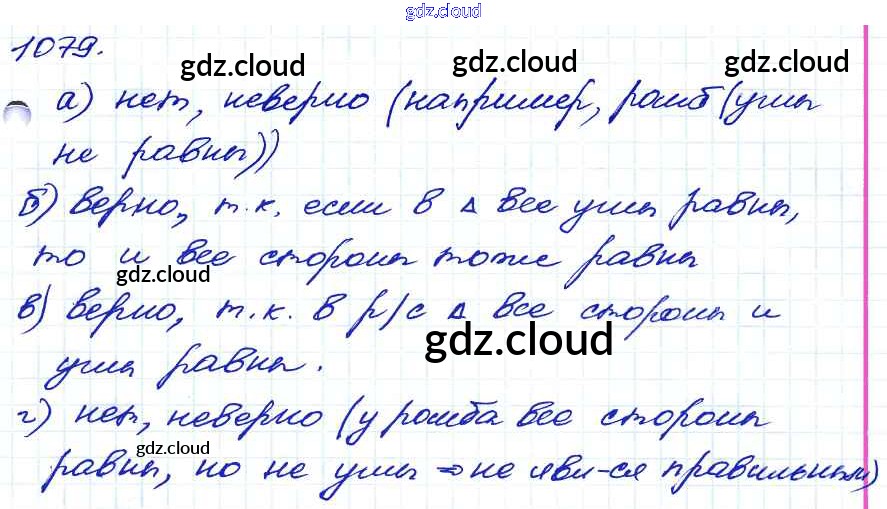 gdz.cloud
1079.
gdz.cloud gdz.cloud
а) нет, неверно (например, ромб (углы
не равны))
gdz.cloud
б) верно, т.к. если в △ все углы равны,
то и все стороны тоже равны
gdz.cloud
в) верно, т.к. в р/с △ все стороны и
gdz.cloud
углы равны.
г) нет, неверно (у ромба все стороны
gdz.cloud
равны, но не углы ⇒ не явл-ся правильным)